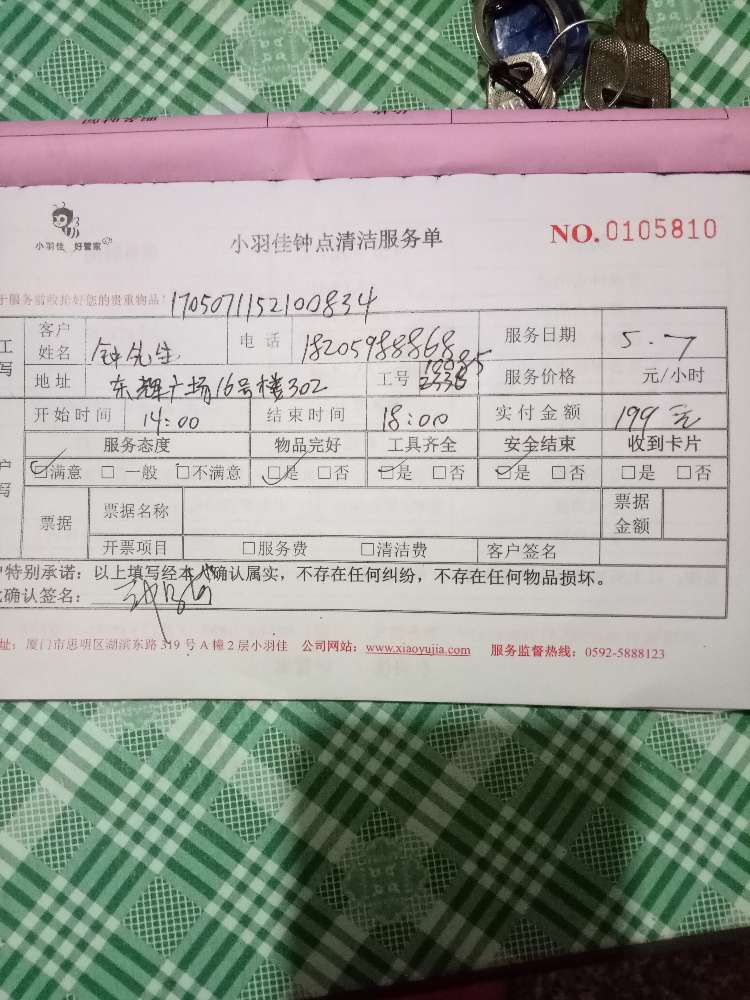 小羽佳 好管家
小羽佳钟点清洁服务单
NO.0105810
于服务前收拾好您的贵重物品: 1705071152100834
工 客户姓名 钟先生 电话 18205988868 服务日期 5.7
写 地址 东辉广场16号楼302 工号 服务价格 元/小时
开始时间 14:00 结束时间 18:00 实付金额 199元
服务态度 物品完好 工具齐全 安全结束 收到卡片
户写 ☑满意 □一般 □不满意 ☑是 □否 ☑是 □否 ☑是 □否 □是 □否
票据 票据名称 票据金额
开票项目 □服务费 □清洁费 客户签名
户特别承诺:以上填写经本人确认属实,不存在任何纠纷,不存在任何物品损坏。
确认签名:
址:厦门市思明区湖滨东路319号A幢2层小羽佳 公司网站:www.xiaoyujia.com 服务监督热线:0592-5888123